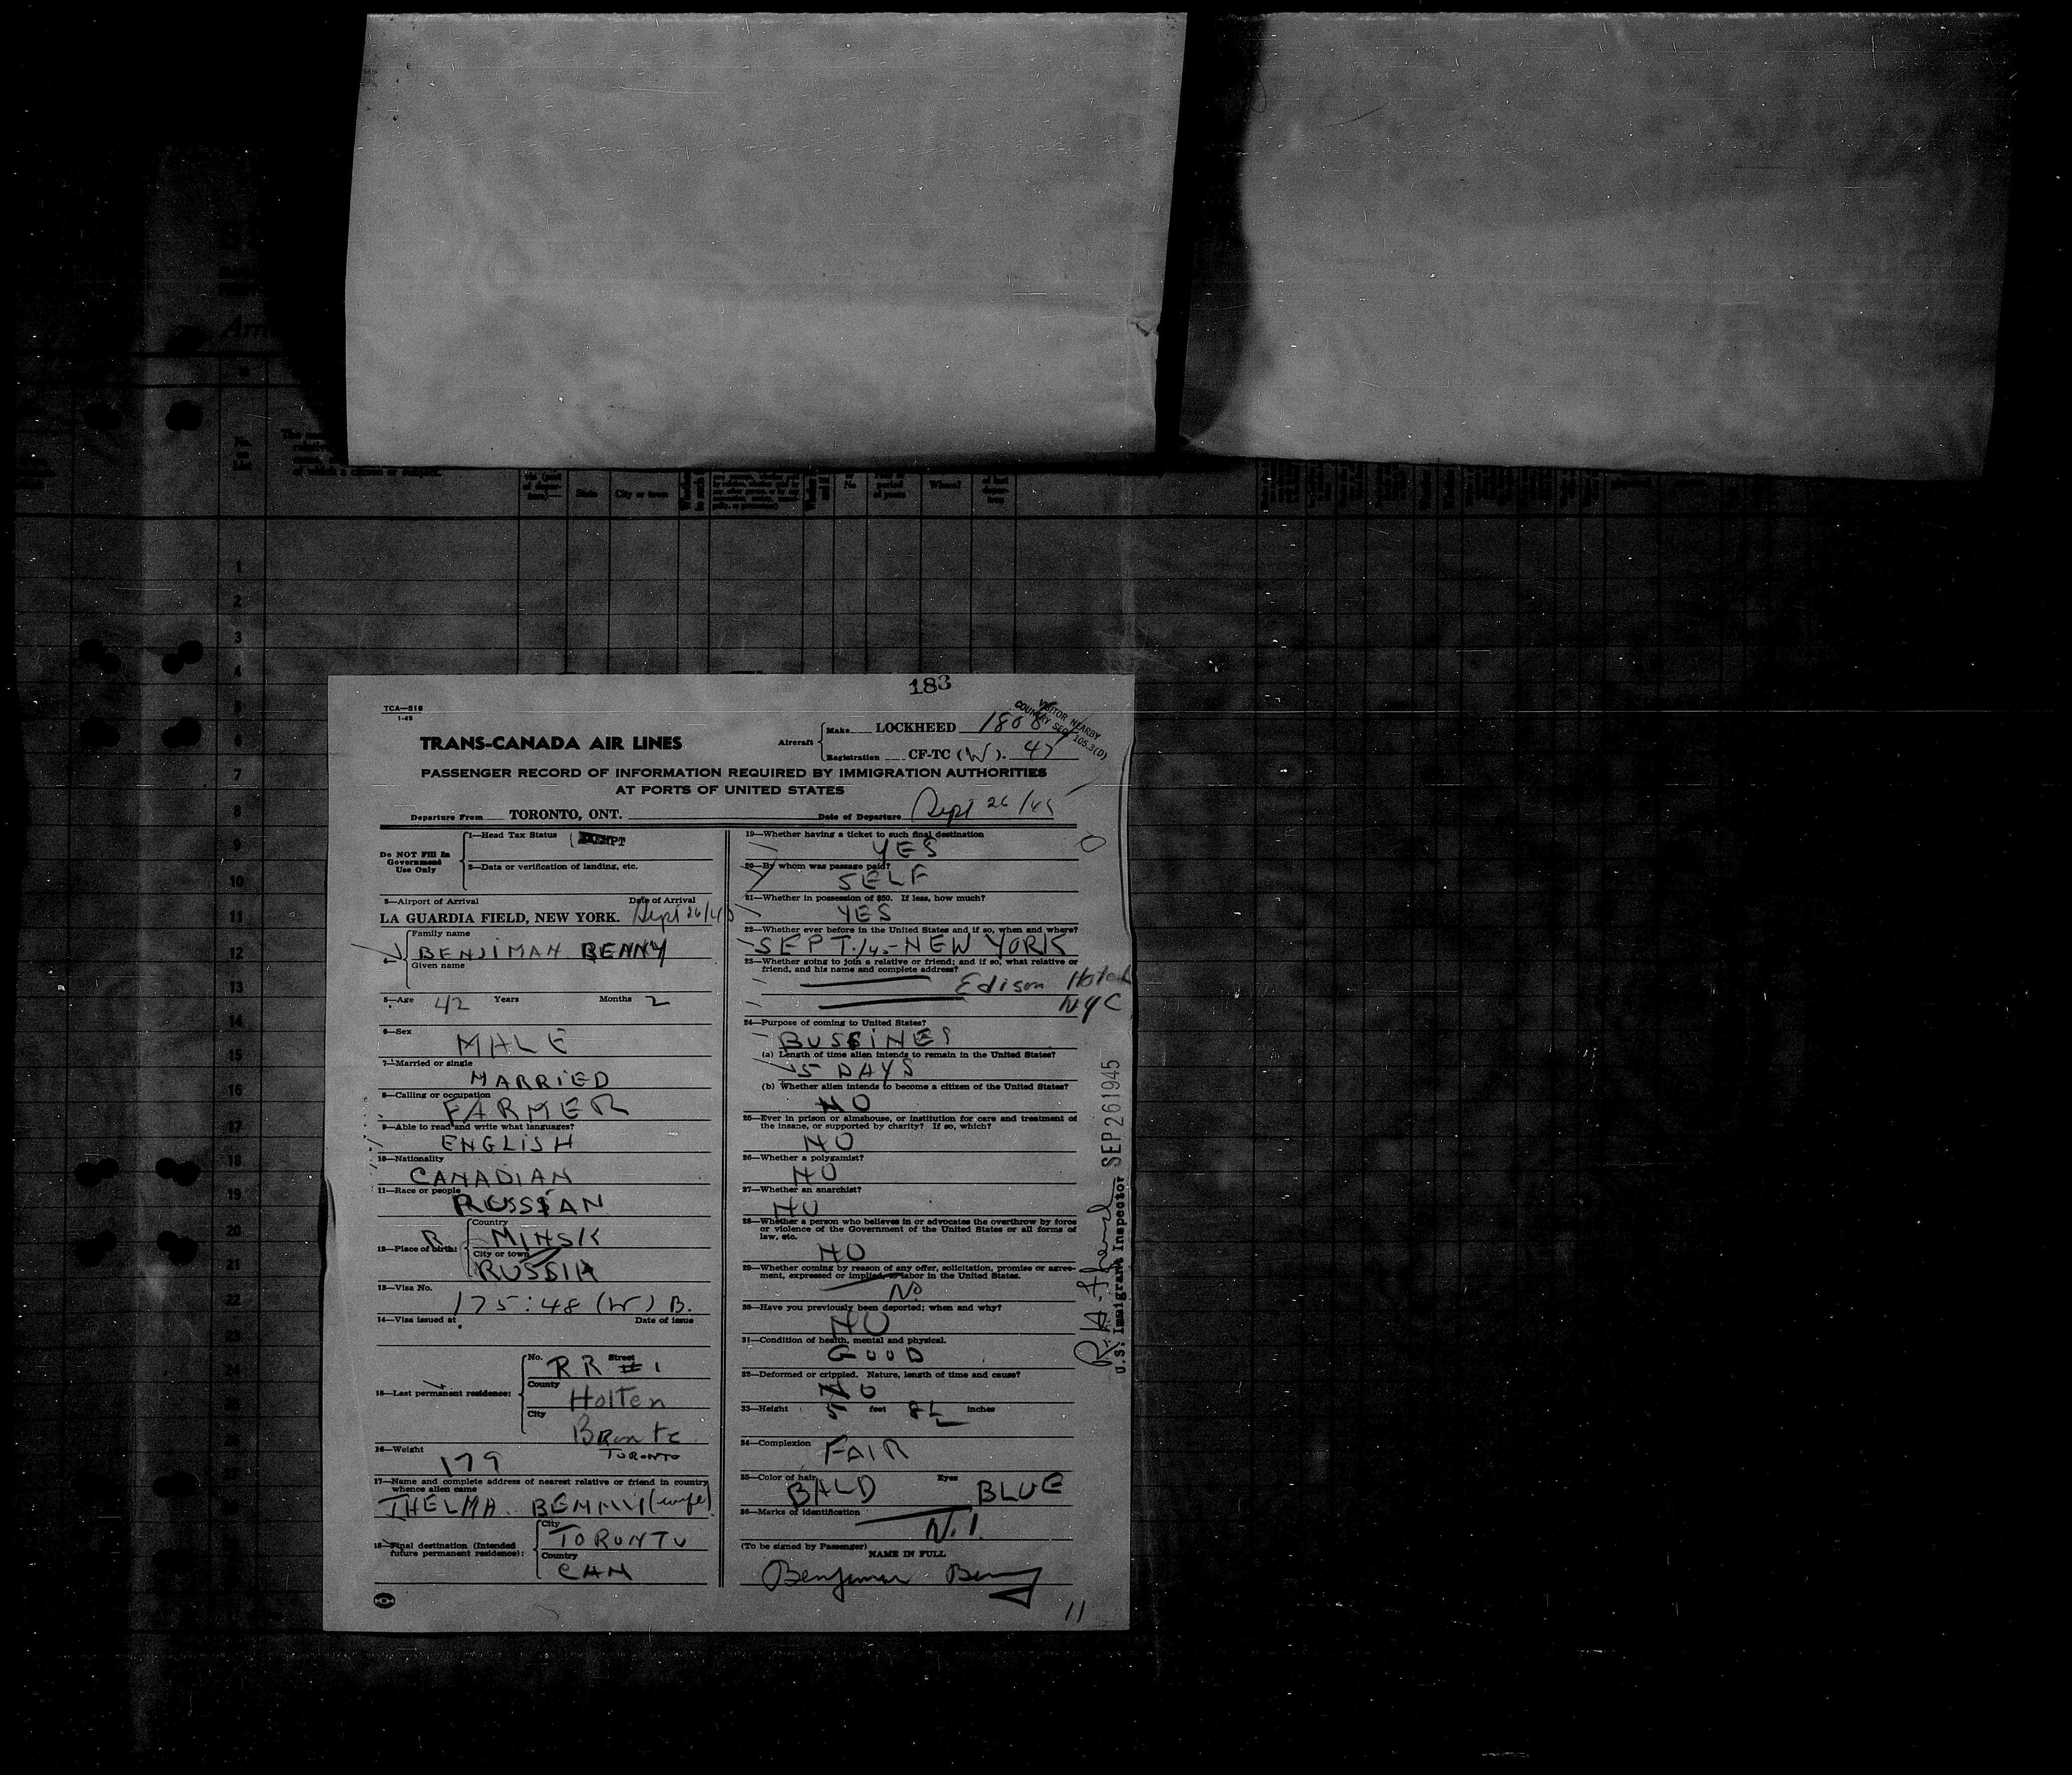 183
TCA—518
1-45
VISITOR NEARBY
COUNTRY SEC. 105.3(D)
TRANS-CANADA AIR LINES
Aircraft
Make LOCKHEED 1808
Registration CF-TC (W). 47
PASSENGER RECORD OF INFORMATION REQUIRED BY IMMIGRATION AUTHORITIES
AT PORTS OF UNITED STATES
Departure From TORONTO, ONT. Date of Departure Sept 26/45
Do NOT Fill In
Government
Use Only
1—Head Tax Status EXEMPT
2—Data or verification of landing, etc.
3—Airport of Arrival Date of Arrival
LA GUARDIA FIELD, NEW YORK. Sept 26/45
4— Family name
BENJIMAN BENNY
Given name
5—Age 42 Years Months 2
6—Sex
MALE
7—Married or single
MARRIED
8—Calling or occupation
FARMER
9—Able to read and write what languages?
ENGLISH
10—Nationality
CANADIAN
11—Race or people
RUSSIAN
12—Place of birth:
R
Country
MINSK
City or town
RUSSIA
13—Visa No.
175:48 (W) B.
14—Visa issued at Date of issue
15—Last permanent residence:
No. RR #1 Street
County
Holten
City
Bronte
TORONTO
16—Weight
179
17—Name and complete address of nearest relative or friend in country
whence alien came
THELMA BENNY (wife)
18—Final destination (Intended
future permanent residence):
City
TORONTO
Country
CAN
19—Whether having a ticket to such final destination
YES
20—By whom was passage paid?
SELF
21—Whether in possession of $50. If less, how much?
YES
22—Whether ever before in the United States and if so, when and where?
SEPT./45-NEW YORK
23—Whether going to join a relative or friend; and if so, what relative or
friend, and his name and complete address?
Edison Hotel
NYC
24—Purpose of coming to United States?
BUSSINES
(a) Length of time alien intends to remain in the United States?
5 DAYS
(b) Whether alien intends to become a citizen of the United States?
NO
25—Ever in prison or almshouse, or institution for care and treatment of
the insane, or supported by charity? If so, which?
NO
26—Whether a polygamist?
NO
27—Whether an anarchist?
NO
28—Whether a person who believes in or advocates the overthrow by force
or violence of the Government of the United States or all forms of
law, etc.
NO
29—Whether coming by reason of any offer, solicitation, promise or agree-
ment, expressed or implied, to labor in the United States.
No
30—Have you previously been deported; when and why?
NO
31—Condition of health, mental and physical.
GOOD
32—Deformed or crippled. Nature, length of time and cause?
NO
33—Height 5 feet 8½ inches
34—Complexion FAIR
35—Color of hair BALD Eyes BLUE
36—Marks of identification
N.I.
(To be signed by Passenger)
NAME IN FULL
Benjiman Benny
11
U.S. Immigrant Inspector SEP 26 1945
No.
of which a citizen or subject.
State
City or town
No
Where?
1
2
3
4
5
6
7
8
9
10
11
12
13
14
15
16
17
18
19
20
21
22
23
24